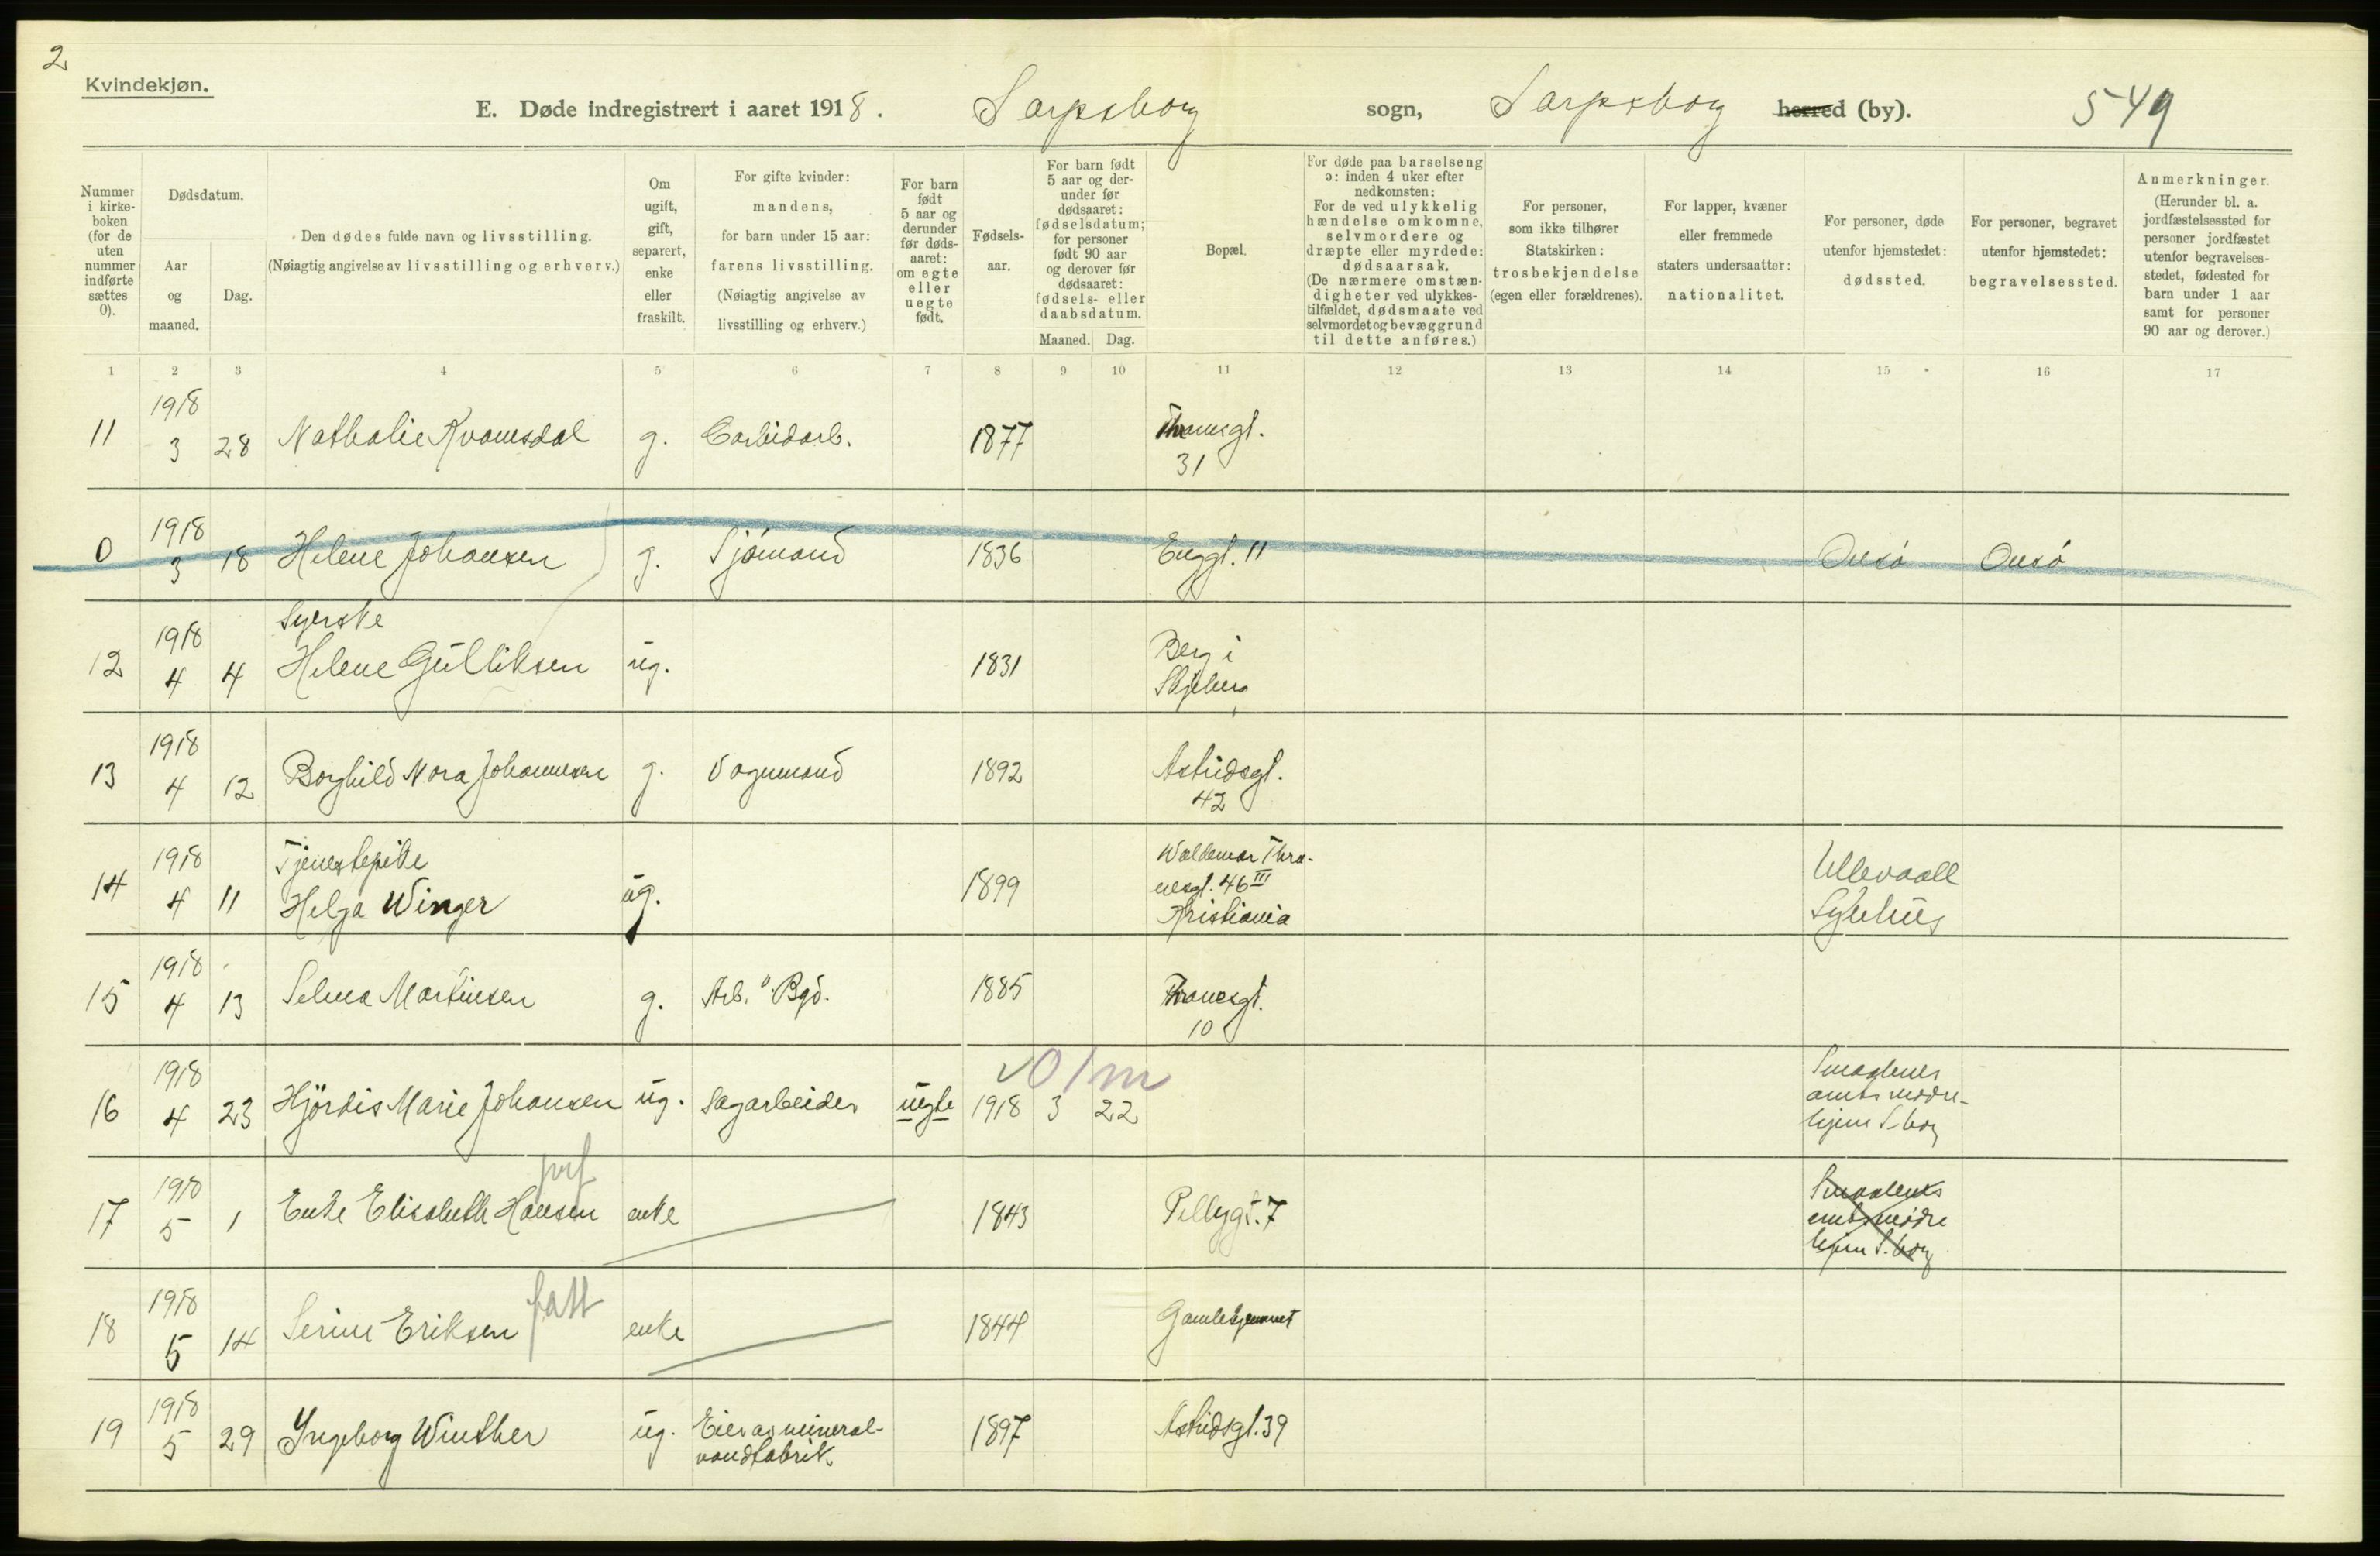 2
Kvindekjøn.
E. Døde indregistrert i aaret 1918. Sarpsborg sogn, Sarpsborg herred (by). 549
Nummer i kirke-boken (for de uten nummer indførte sættes 0).
Dødsdatum.
Aar og maaned.
Dag.
Den dødes fulde navn og livsstilling.
(Nøiagtig angivelse av livsstilling og erhverv.)
Om ugift, gift, separert, enke eller fraskilt.
For gifte kvinder: mandens, for barn under 15 aar: farens livsstilling. (Nøiagtig angivelse av livsstilling og erhverv.)
For barn født 5 aar og derunder før døds-aaret: om egte eller uegte født.
Fødsels-aar.
For barn født 5 aar og der-under før dødsaaret: fødselsdatum; for personer født 90 aar og derover før dødsaaret: fødsels- eller daabsdatum.
Maaned. Dag.
Bopæl.
For døde paa barselseng ɔ: inden 4 uker efter nedkomsten: For de ved ulykkelig hændelse omkomne, selvmordere og dræpte eller myrdede: dødsaarsak. (De nærmere omstæn-digheter ved ulykkes-tilfældet, dødsmaate ved selvmordet og bevæggrund til dette anføres.)
For personer, som ikke tilhører Statskirken: trosbekjendelse (egen eller forældrenes).
For lapper, kvæner eller fremmede staters undersaatter: nationalitet.
For personer, døde utenfor hjemstedet: dødssted.
For personer, begravet utenfor hjemstedet: begravelsessted.
Anmerkninger. (Herunder bl. a. jordfæstelsessted for personer jordfæstet utenfor begravelses-stedet, fødested for barn under 1 aar samt for personer 90 aar og derover.)
1 2 3 4 5 6 7 8 9 10 11 12 13 14 15 16 17
11 1918 3 28 Nathalie Kvamsdal g. Carbidarb. 1877 Thranesgt. 31
0 1918 3 18 Helene Johansen g. Sjømand 1836 Enggt. 11 Onsø Onsø
12 1918 4 4 Syerske Helene Gulliksen ug. 1831 Berg i Skjeberg
13 1918 4 12 Borghild Nora Johannesen g. Vognmand 1892 Astridsgt. 42
14 1918 4 11 Tjenestepike Helga Winger ug. 1899 Waldemar Thra-nesgt. 46 III Kristiania Ullevaall Sykehus
15 1918 4 13 Selma Martinsen g. Arb. Bgd. 1885 Thranesgt. 10
16 1918 4 23 Hjørdis Marie Johansen ug. Sagarbeider uegte 1918 3 22 0/m Smaalenes amts mødre-hjem S-borg
17 1918 5 1 Enke Elisabeth Hansen enke 1843 Pellygt. 7 Smaalenes amts mødre hjem S.borg
18 1918 5 14 Serine Eriksen fatt enke 1844 Gamlehjemmet
19 1918 5 29 Ingeborg Winther ug. Eier av mineral-vandfabrik 1897 Astridsgt. 39